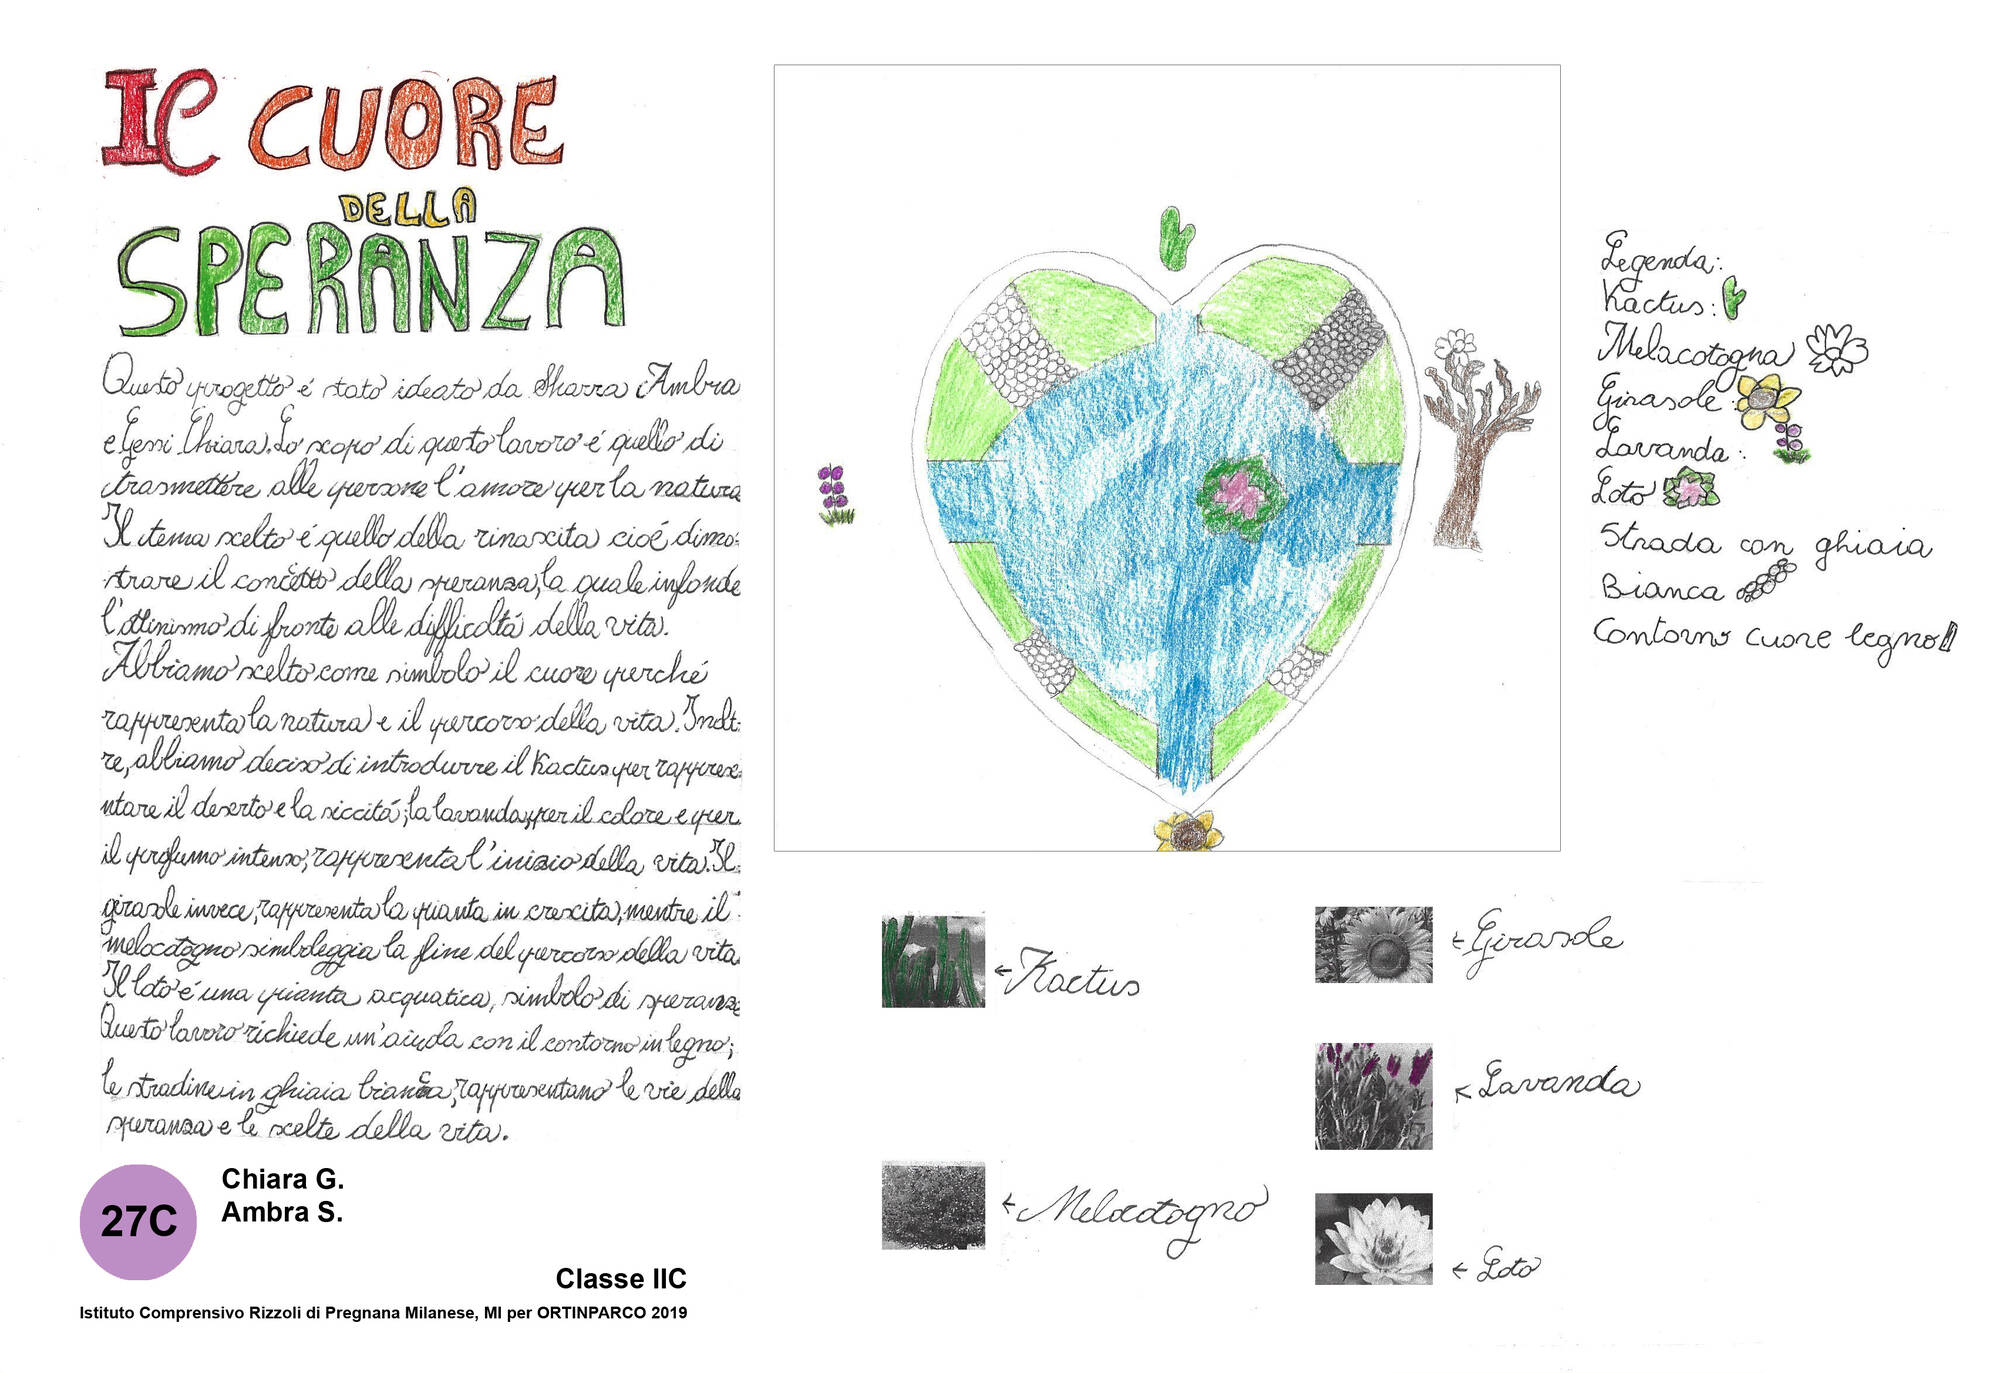 IL CUORE
DELLA
SPERANZA
Questo progetto é stato ideato da Sharra Ambra
e Gessi Chiara. Lo scopo di questo lavoro é quello di
trasmettere alle persone l'amore per la natura
Il tema scelto é quello della rinascita cioé dimo-
strare il concetto della speranza, la quale infonde
l'ottimismo di fronte alle difficoltá della vita.
Abbiamo scelto come simbolo il cuore perché
rappresenta la natura e il percorso della vita. Inolt-
re, abbiamo deciso di introdurre il Kactus per rappres-
entare il deserto e la siccitá; la lavanda, per il colore e per
il profumo intenso, rappresenta l'inizio della vita. Il
girasole invece, rappresenta la pianta in crescita, mentre il
melocotogno simboleggia la fine del percorso della vita.
Il loto é una pianta acquatica, simbolo di speranza
Questo lavoro richiede un'aiuda con il contorno in legno;
le stradine in ghiaia bianca, rappresentano le vie della
speranza e le scelte della vita.
27C
Chiara G.
Ambra S.
Classe IIC
Istituto Comprensivo Rizzoli di Pregnana Milanese, MI per ORTINPARCO 2019
Legenda:
Kactus:
Melacotogna
Girasole:
Lavanda:
Loto
Strada con ghiaia
Bianca
Contorno cuore legno
←Kactus
←Girasole
←Lavanda
←Melocotogno
←Loto